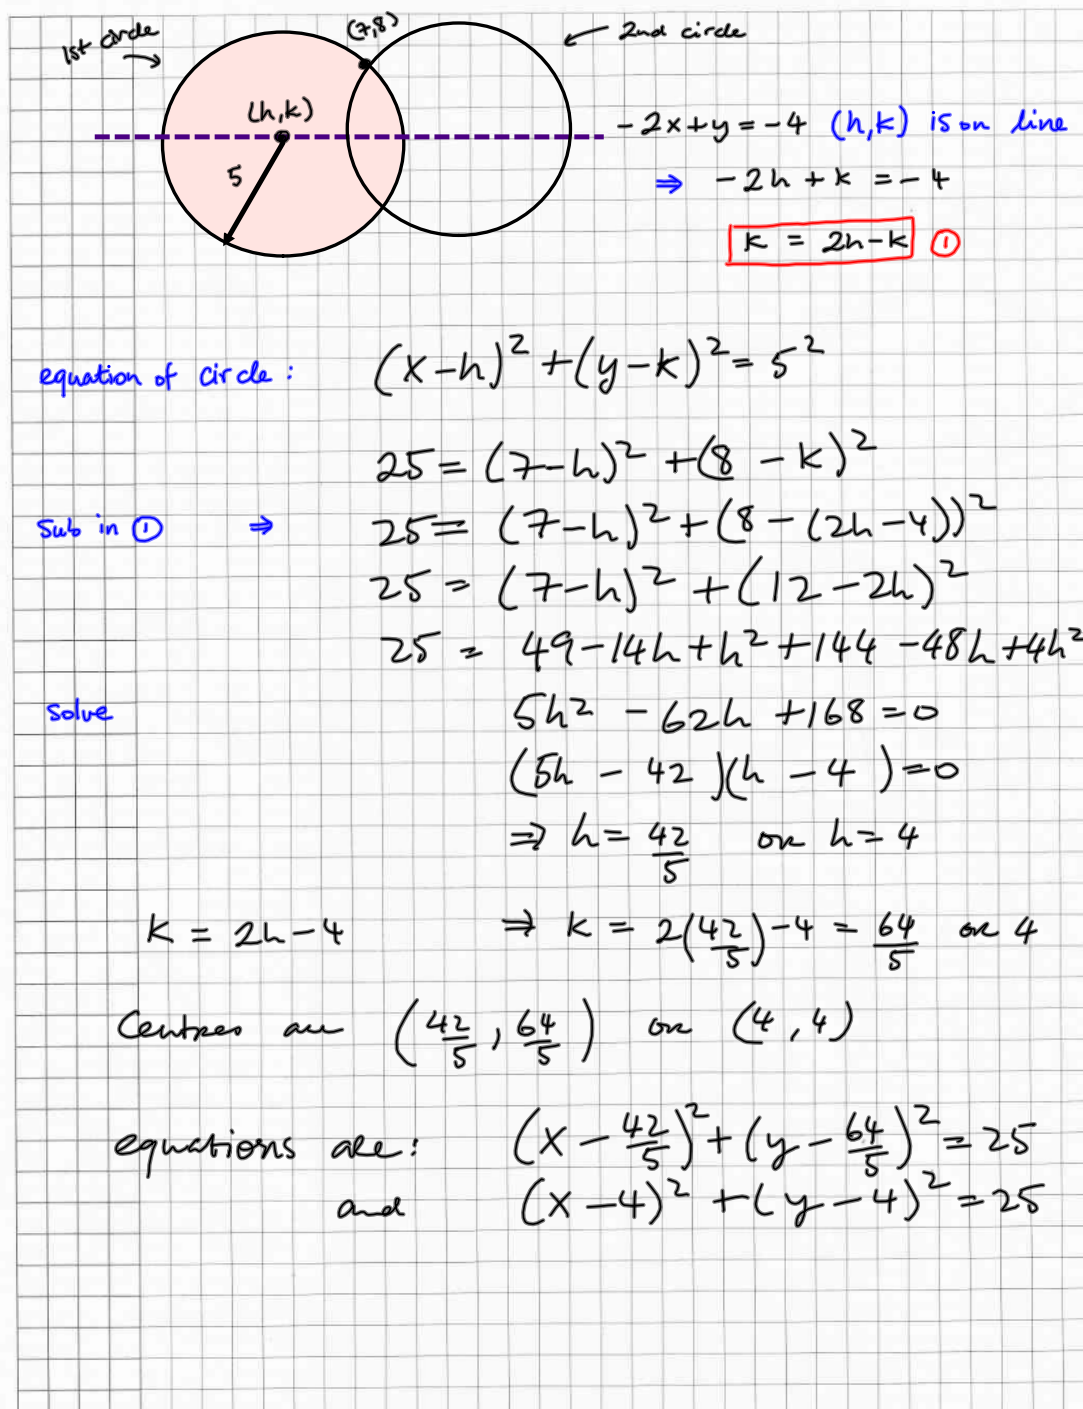 1st circle
(7,8)
2nd circle
(h,k)
5
-2x+y=-4 (h,k) is on line
⇒ -2h+k=-4
k = 2h-k ①
equation of circle: (x-h)²+(y-k)²=5²
25=(7-h)²+(8-k)²
Sub in ① ⇒ 25=(7-h)²+(8-(2h-4))²
25=(7-h)²+(12-2h)²
25= 49-14h+h²+144-48h+4h²
Solve 5h²-62h+168=0
(5h-42)(h-4)=0
⇒ h=42/5 or h=4
k=2h-4 ⇒ k=2(42/5)-4=64/5 or 4
Centres are (42/5, 64/5) or (4,4)
equations are: (x-42/5)²+(y-64/5)²=25
and (x-4)²+(y-4)²=25